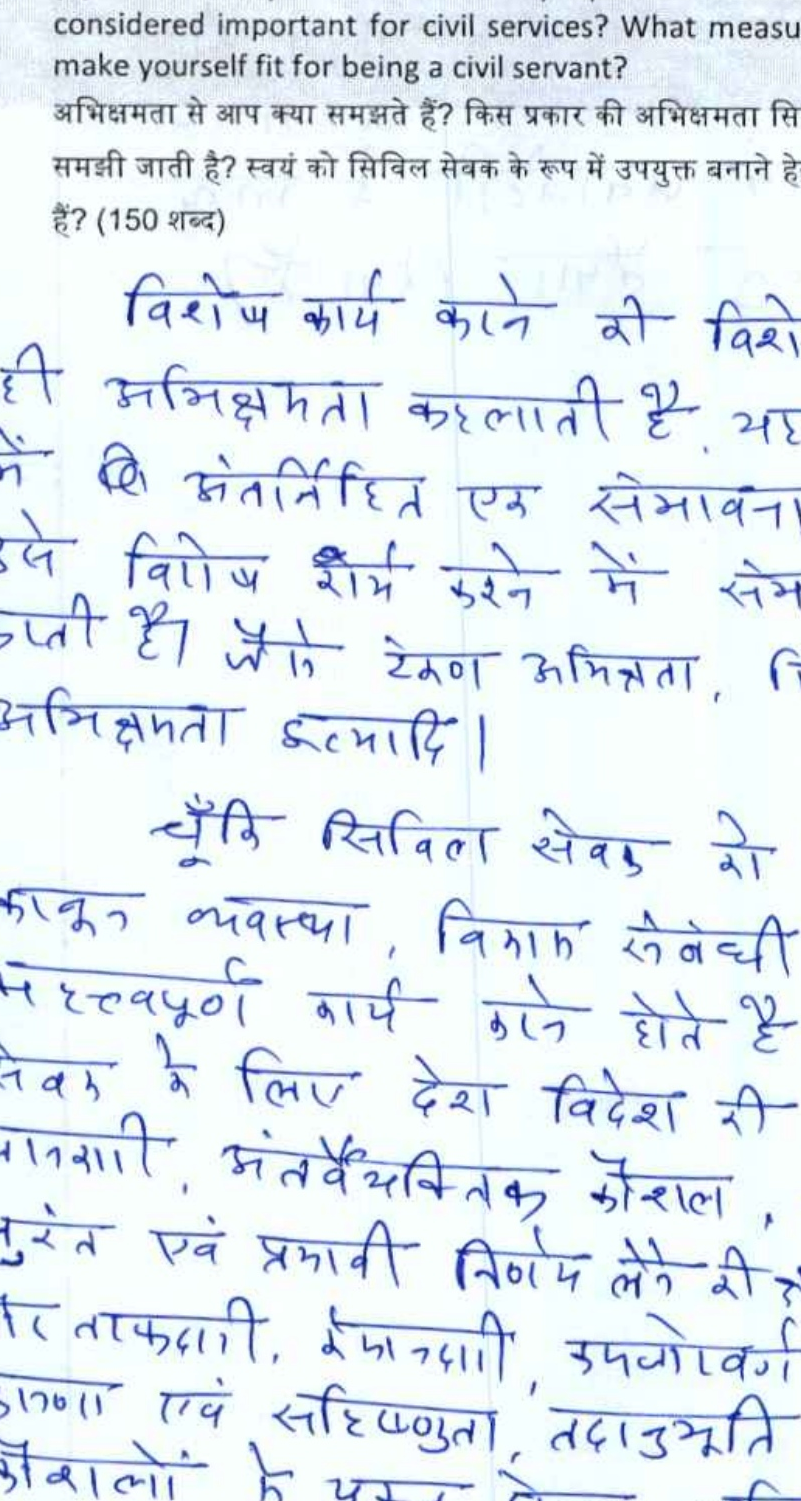 considered important for civil services? What measu
make yourself fit for being a civil servant?
अभिक्षमता से आप क्या समझते हैं? किस प्रकार की अभिक्षमता सि
समझी जाती है? स्वयं को सिविल सेवक के रूप में उपयुक्त बनाने हे
हैं? (150 शब्द)
विशेष कार्य करने की विशे
ही अभिक्षमता कहलाती है, यह
में अंतर्निहित एक संभावना
उसे विशेष कार्य करने में सम
है। जैसे टंकण
अभिक्षमता इत्यादि।
चूँकि सिविल सेवक को
कानून व्यवस्था, विकास संबंधी
महत्त्वपूर्ण कार्य करने होते है
सेवक के लिए देश विदेश की
जानकारी, अंतर्वैयक्तिक कौशल,
तुरंत एवं प्रभावी निर्णय लेने की
ईमानदारी,
एवं सहिष्णुता, तदानुभूति
कौशलों के